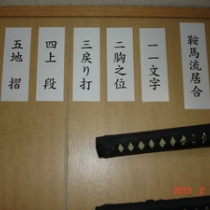 鞍馬流居合
一一文字
二胸之位
三戻り打
四上段
五地摺